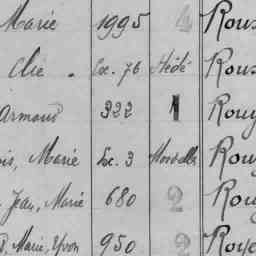 Marie 1995 Rous
Elie . Exc. 76 Hédé Rous
Armand 322 1 Rouy
is, Marie Exc. 3 Mordelles Rouy
Jean, Marie 680 2 Rou
Marie, Yvon 950 2 Roye